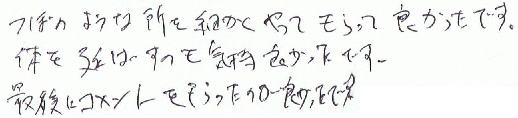 つぼのような所を細かくやってもらって良かったです。
体を延ばすのも気持良かったです。
最後にコメントをもらったのが良かったです